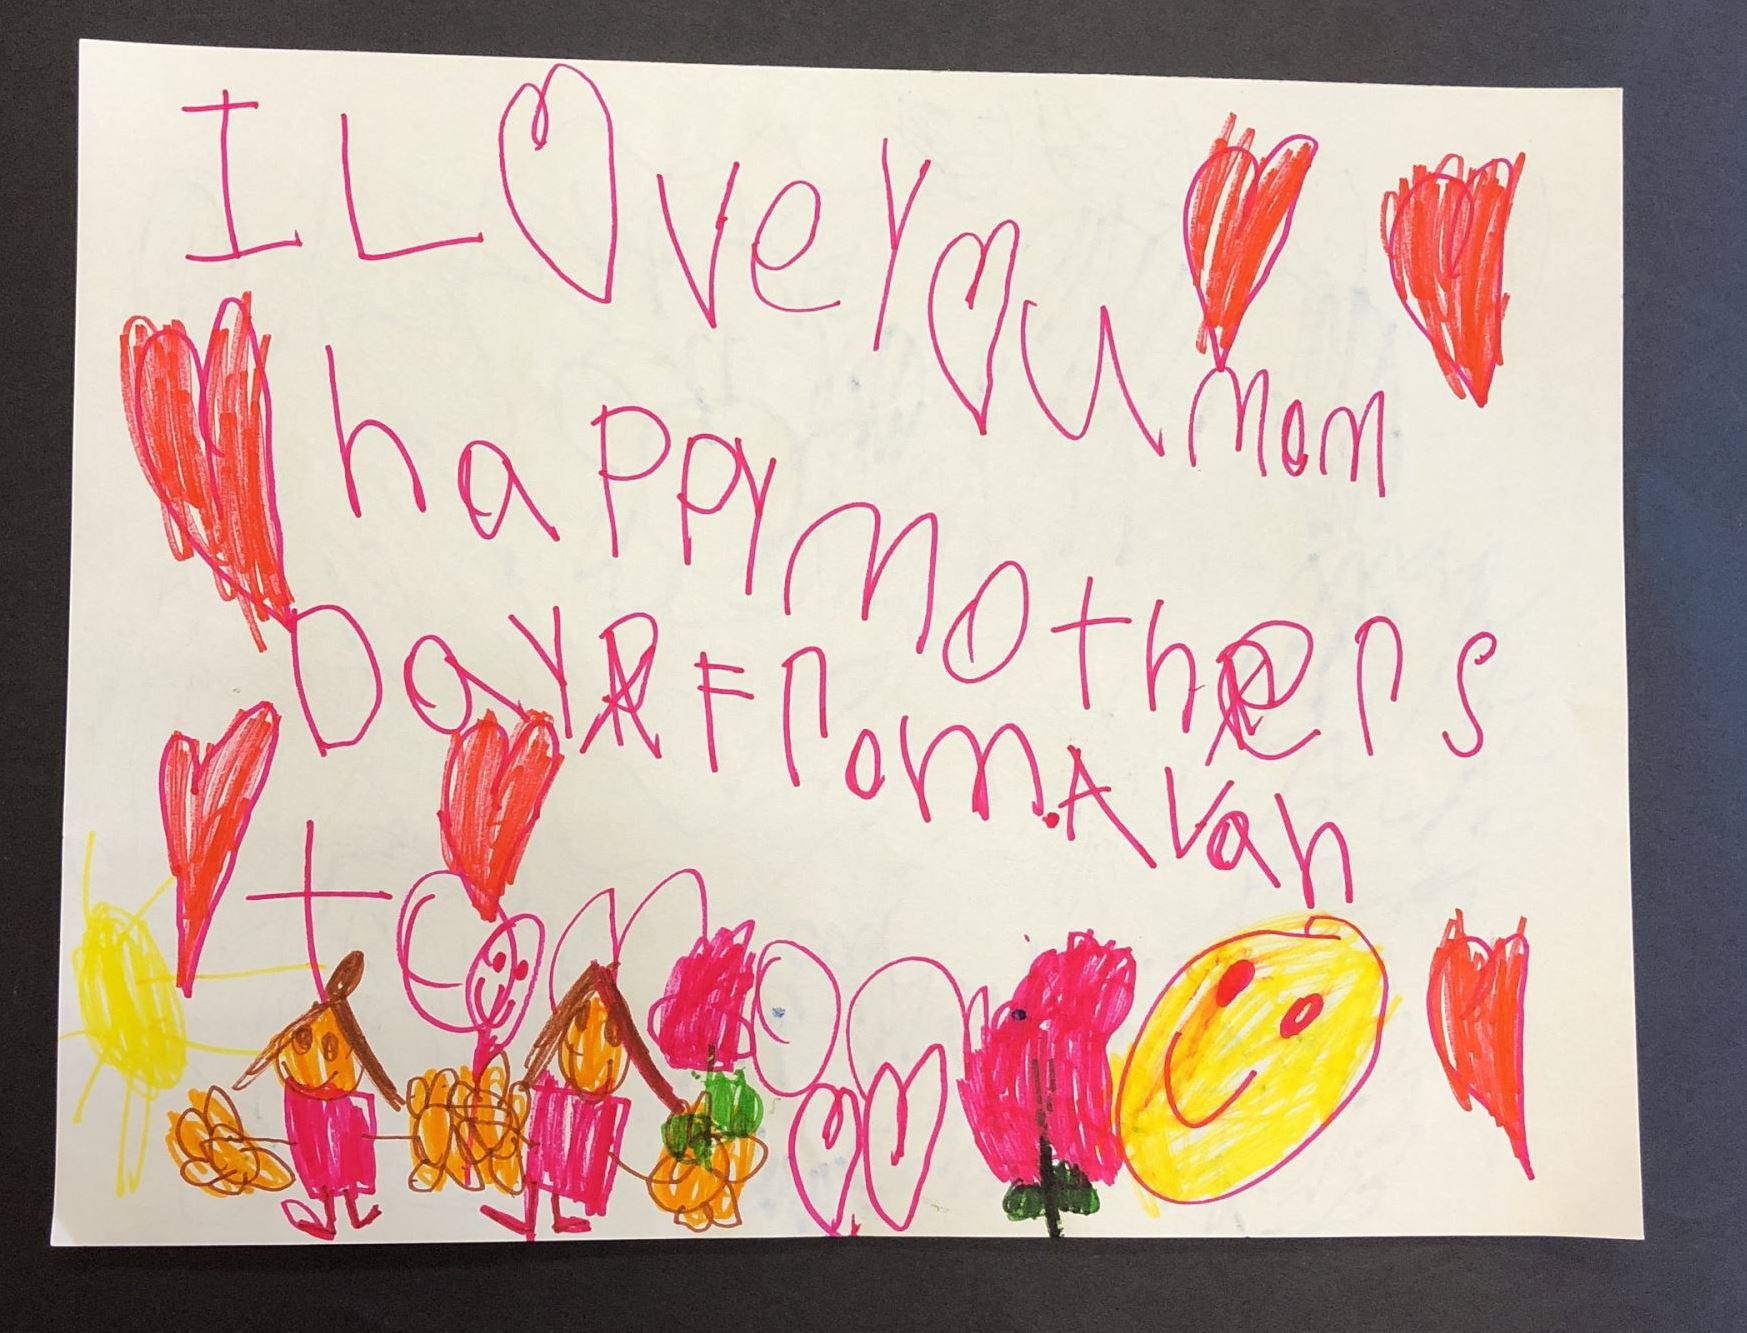 I Love You Mom
happy Mothers
Day From. Avah
to Mom